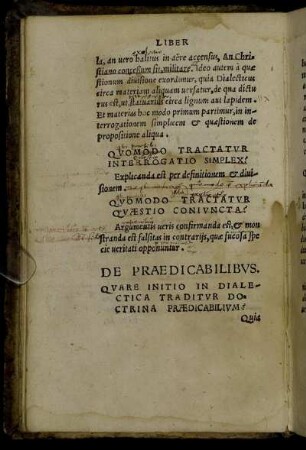 LIBER
la, an uero halitus in aëre accensus, An Chri-
stiano concessum sit, militare, ideo autem à quæ
stionum diuisione exordimur, quia Dialecticus
circa materiam aliquam uersatur, de qua dictu
rus est, ut statuarius circa lignum aut lapidem.
Et materias hoc modo primum partimur, in in-
terrogationem simplicem & quæstionem de
propositione aliqua.
QVOMODO TRACTATVR
INTERROGATIO SIMPLEX?
Explicanda est per definitionem & diui-
sionem.
QVOMODO TRACTATVR
QVÆSTIO CONIVNCTA?
Argumentis ueris confirmanda est, & mon
stranda est falsitas in contrarijs, quæ fucosa spe
cie ueritati opponuntur.
DE PRAEDICABILIBVS.
QVARE INITIO IN DIALE-
CTICA TRADITVR DO-
CTRINA PRÆDICABILIVM?
Quia